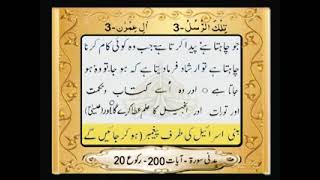 تِلْكَ الرُّسُلُ-3 اٰلِ عِمْرٰن-3
جو چاہتا ہے پیدا کرتا ہے جب وہ کوئی کام کرنا
چاہتا ہے تو ارشاد فرما دیتا ہے کہ ہو جا تو وہ ہو
جاتا ہے ○ اور وہ اُسے کتاب وحکمت
اور تورات اور انجیل کا علم عطا کرے گا ○ اور (عیسیٰ)
بنی اسرائیل کی طرف پیغمبر (ہو کر جائیں گے
مدنی سورۃ - آیات 200 - رکوع 20